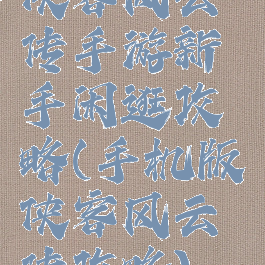 侠客风云
传手游新
手闲逛攻
略(手机版
侠客风云
传攻略)